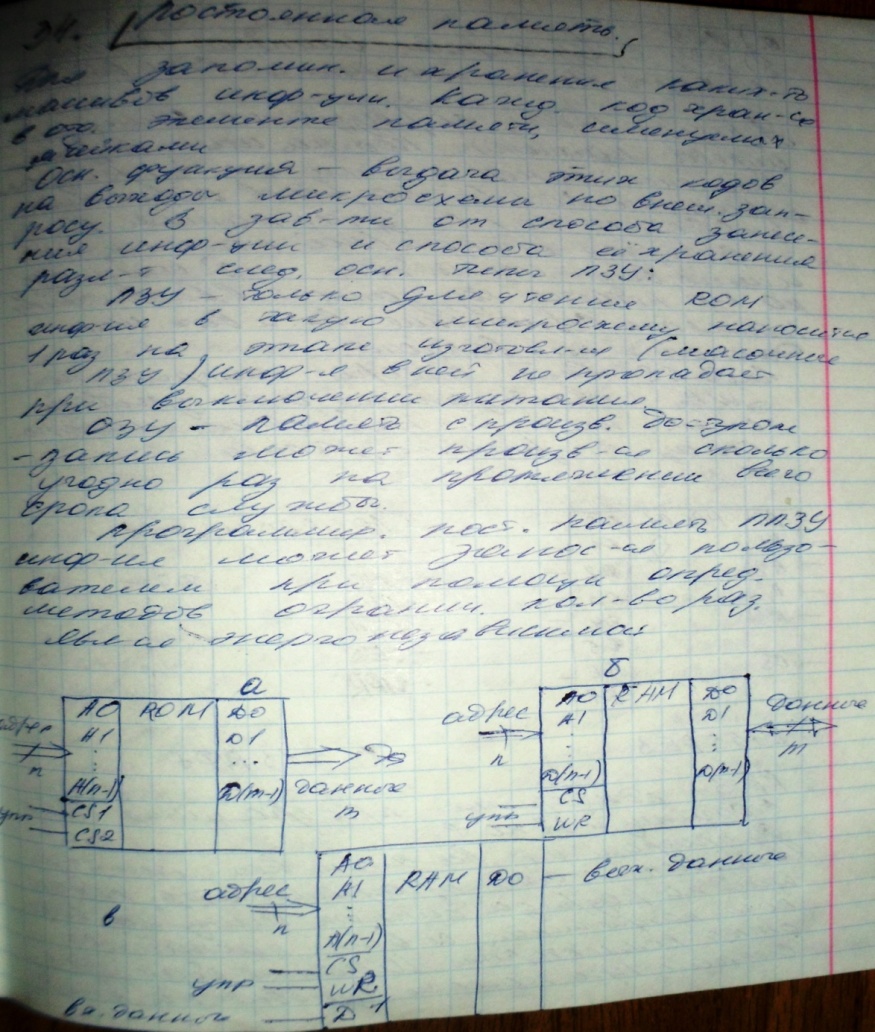 34. Постоянная память.
Для запомин. и хранения каких-то
массивов инф-ции. Кажд. код хран-ся
в отд. элементе памяти, именуемых
ячейками
Осн. функция - выдача этих кодов
на выходы микросхемы по внеш. зап-
росу. В зав-ти от способа занесе-
ния инф-ции и способа её хранения
разл-т след. осн. типы ПЗУ:
ПЗУ - только для чтения ROM
инф-ия в такую микросхему наносится
1 раз на этапе изготовл-ия (масочные
ПЗУ) инф-я в ней не пропадает
при выключении питания
ОЗУ - память с произв. доступом
- запись может произв-ся сколько
угодно раз на протяжении всего
срока службы.
Программир. пост. память ППЗУ
инф-ия может занос-ся пользо-
вателем при помощи опред.
методов огранич. кол-во раз.
явл-ся энергонезависимой
а
адрес
n
A0 ROM D0
A1 D1
... ...
A(n-1) D(m-1)
CS1
CS2
упр
данные
m
б
адрес
n
A0 RAM D0
A1 D1
D(n-1) D(m-1)
CS
WR
упр
данные
m
в
адрес
n
A0
A1 RAM D0 - вых. данные
...
A(n-1)
CS
WR
упр
вх. данные D